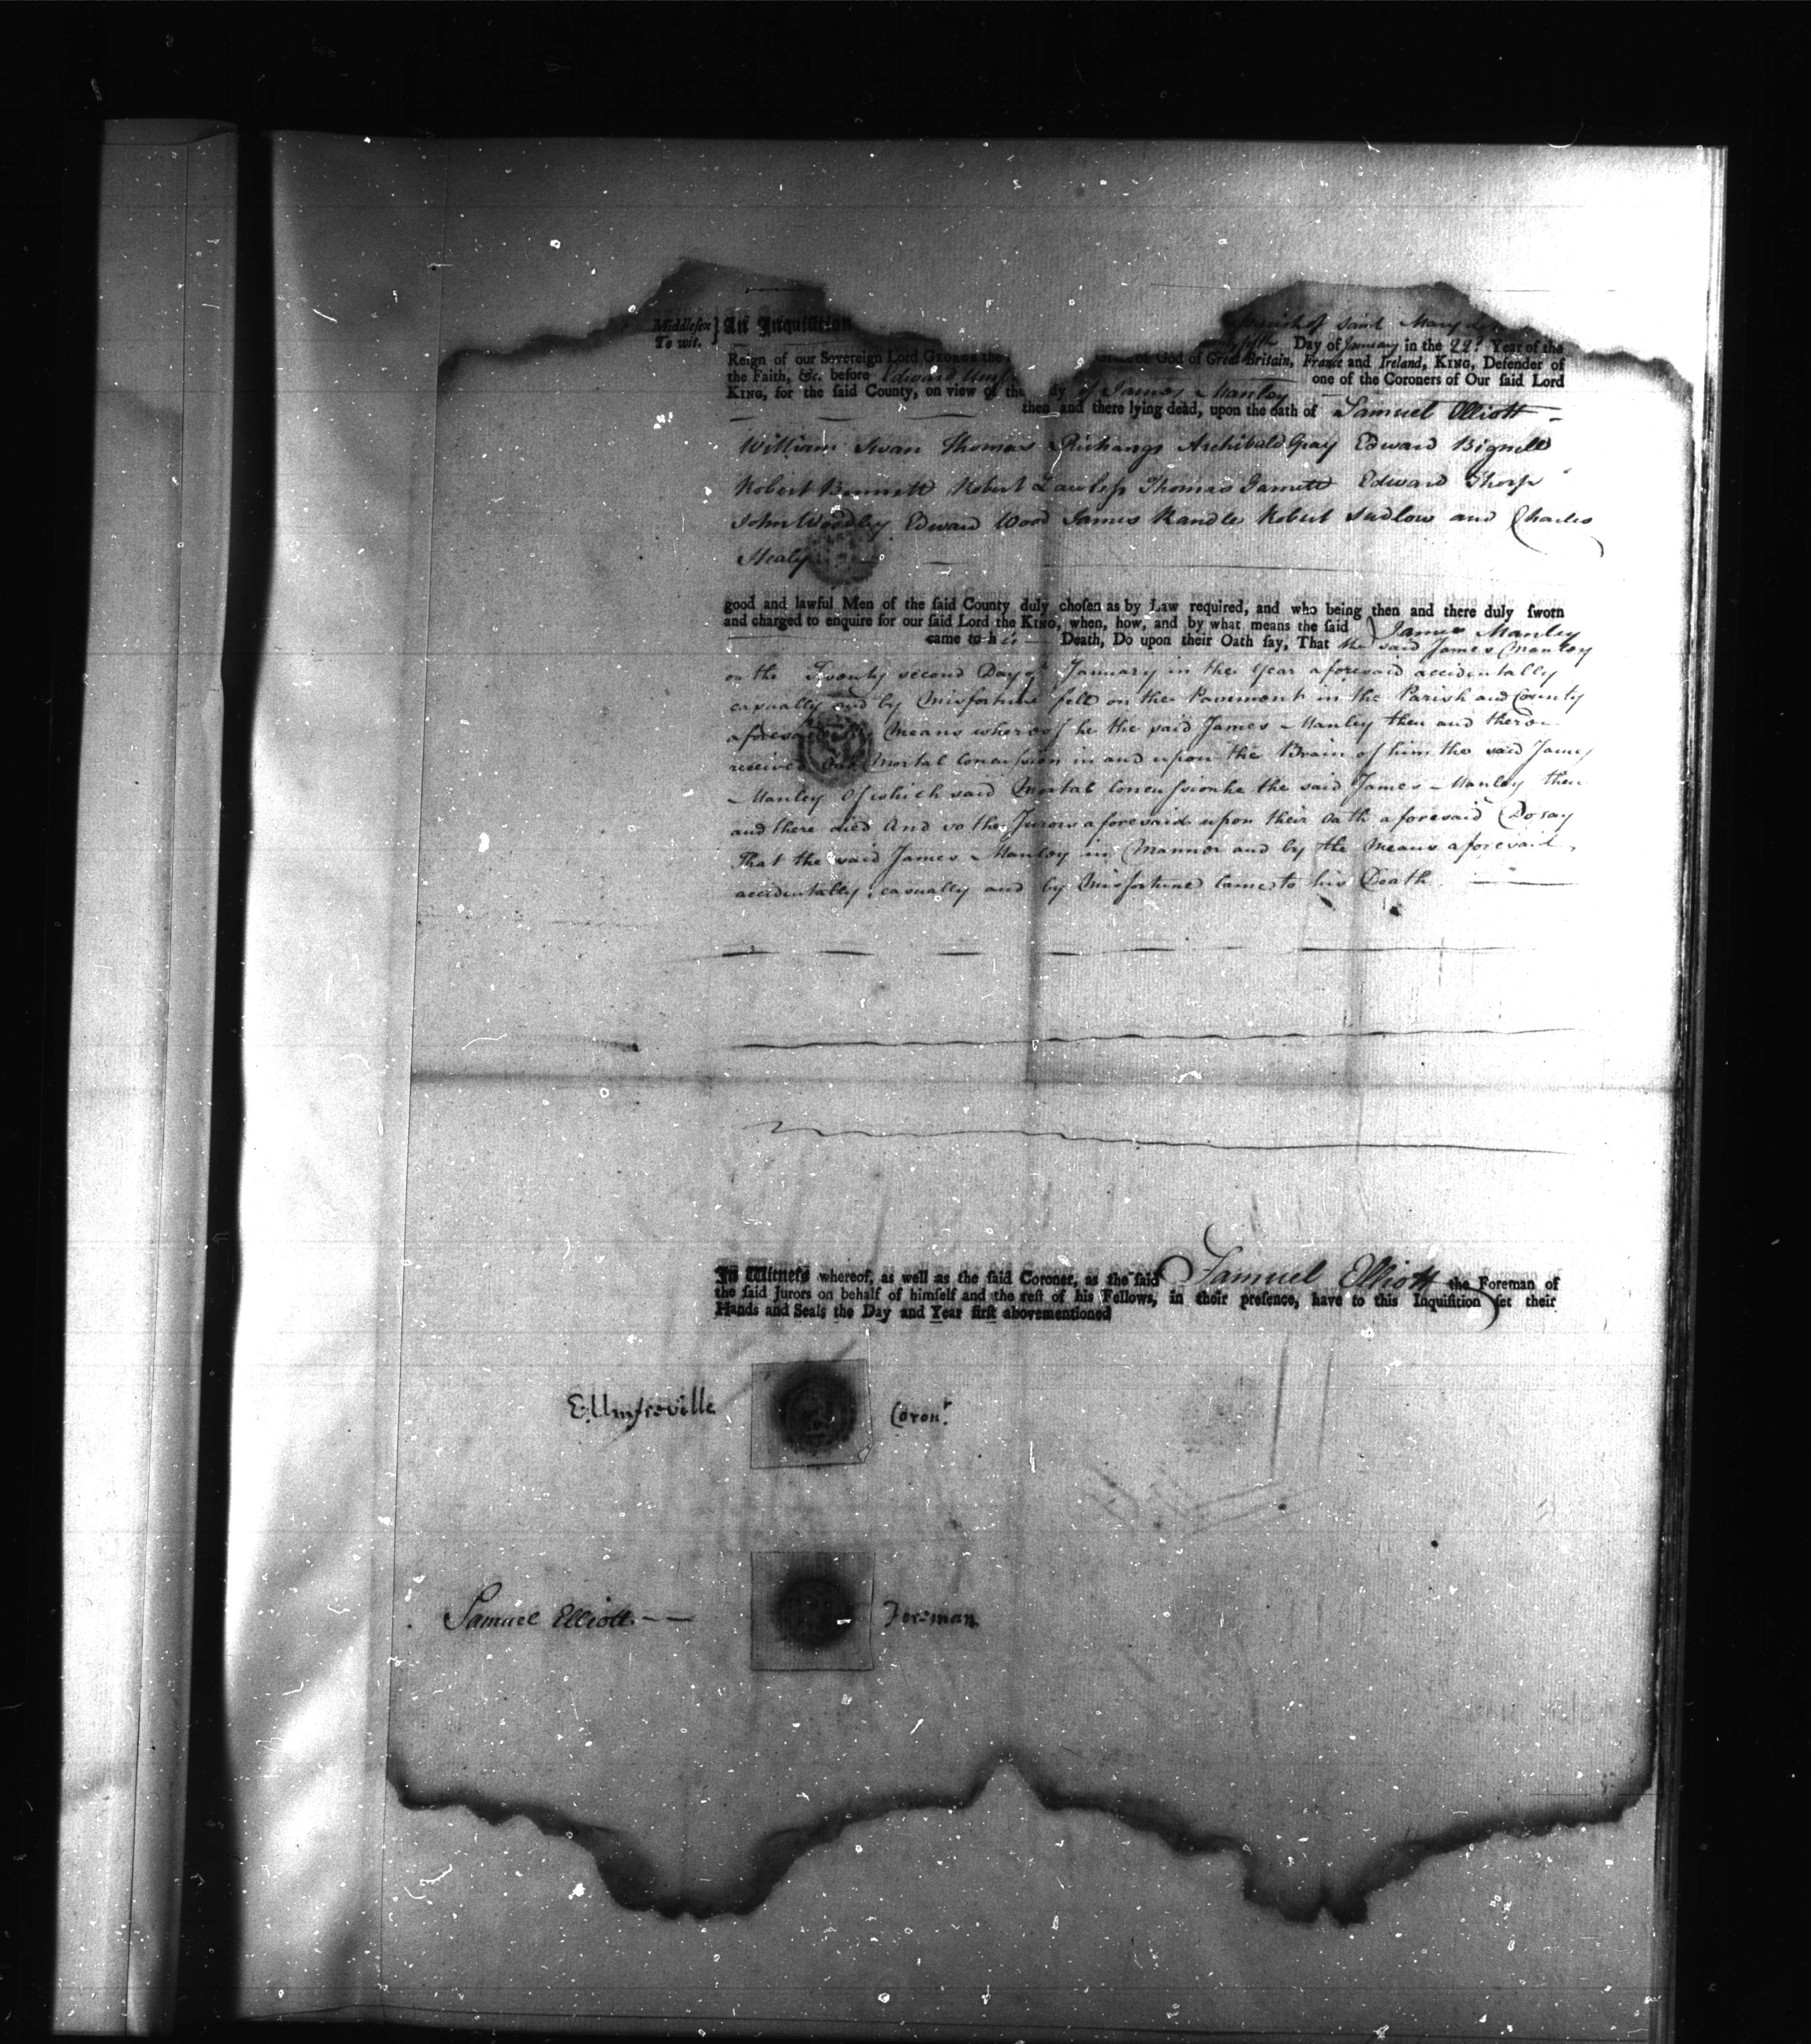 Middlesex } An Inquisition
To wit.
Parish of Saint Mary
fifth Day of January in the 22d Year of the
Reign of our Sovereign Lord GEORGE the of God of Great Britain, France and Ireland, KING, Defender of
the Faith, &c. before Edward Umf one of the Coroners of Our said Lord
KING, for the said County, on view of the dy of James Manley
then and there lying dead, upon the oath of Samuel Elliott
William Swan Thomas Richangs Archibald Gray Edward Bignell
Robert Bennett Robert Lawless Thomas Jarnett Edward Thorp
John Woodley Edward Wood James Randle Robert Sudlow and Charles
Healy
good and lawful Men of the said County duly chosen as by Law required, and who being then and there duly sworn
and charged to enquire for our said Lord the KING, when, how, and by what means the said James Manley
came to his Death, Do upon their Oath say, That the said James Manley
on the Twenty second Day of January in the Year aforesaid accidentally
casually and by Misfortune fell on the Pavement in the Parish and County
aforesaid By Means whereof he the said James Manley then and there
received One Mortal Concussion in and upon the Brain of him the said James
Manley Of which said Mortal Concussion he the said James Manley then
and there died And so the Jurors aforesaid upon their Oath aforesaid Do say
That the said James Manley in Manner and by the Means aforesaid
accidentally, casually and by Misfortune Came to his Death
In Witness whereof, as well as the said Coroner, as the said Samuel Elliott the Foreman of
the said Jurors on behalf of himself and the rest of his Fellows, in their presence, have to this Inquisition set their
Hands and Seals the Day and Year first abovementioned
E. Umfreville Coronr.
Samuel Elliott Foreman